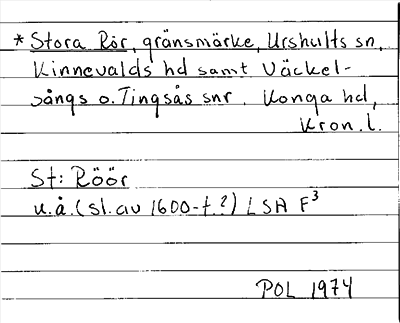 * Stora Rör, gränsmärke, Urshults sn,
Kinnevalds hd samt Väckel-
sångs o. Tingsås snr. Konga hd,
Kron. l.
St: Röör
u.å. (sl. av 1600-t.?) LSA F³
POL 1974